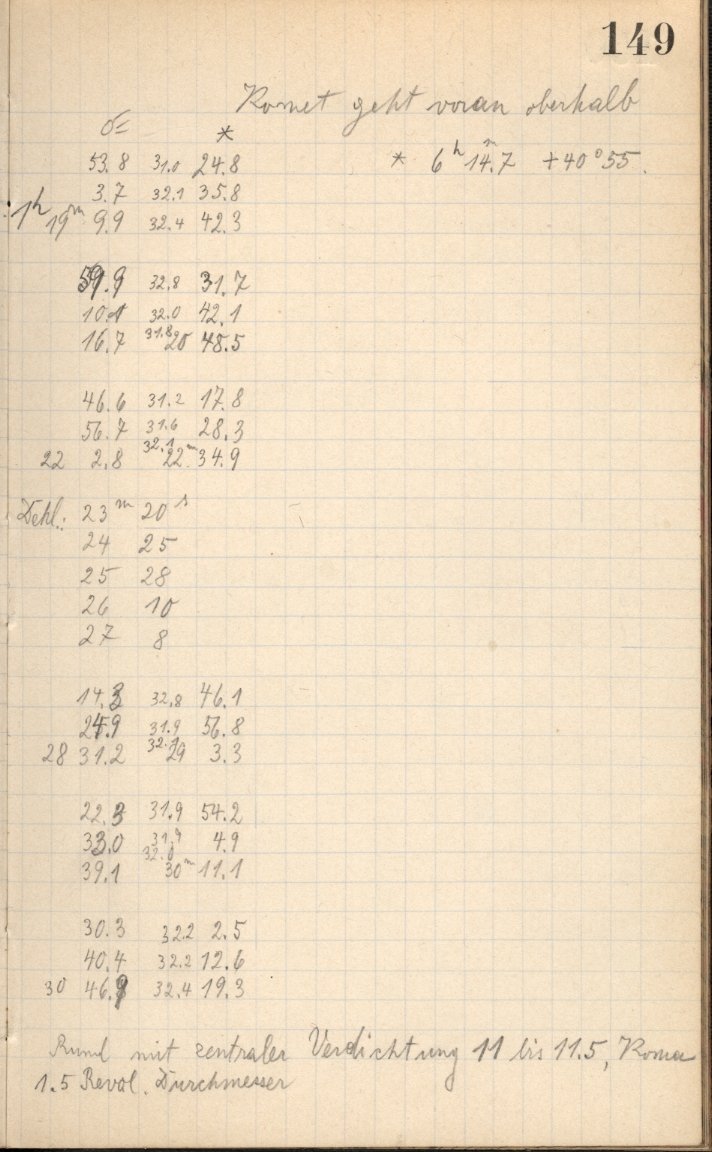 149
Komet geht voran oberhalb
☄ *
53.8 31.0 24.8 * 6h 14.m7 +40°55.
3.7 32.1 35.8
1h 19m 9.9 32.4 42.3
59.9 32.8 31.7
10.1 32.0 42.1
16.7 31.8 20 48.5
46.6 31.2 17.8
56.7 31.6 28.3
22 2.8 32.1 22m 34.9
Dekl.: 23m 20s
24 25
25 28
26 10
27 8
14.3 32.8 46.1
24.9 31.9 56.8
28 31.2 32.1 29 3.3
22.3 31.9 54.2
33.0 31.9 4.9
39.1 32.0 30m 11.1
30.3 32.2 2.5
40.4 32.2 12.6
30 46.9 32.4 19.3
Rund mit zentraler Verdichtung 11 bis 11.5, Koma
1.5 Revol. Durchmesser